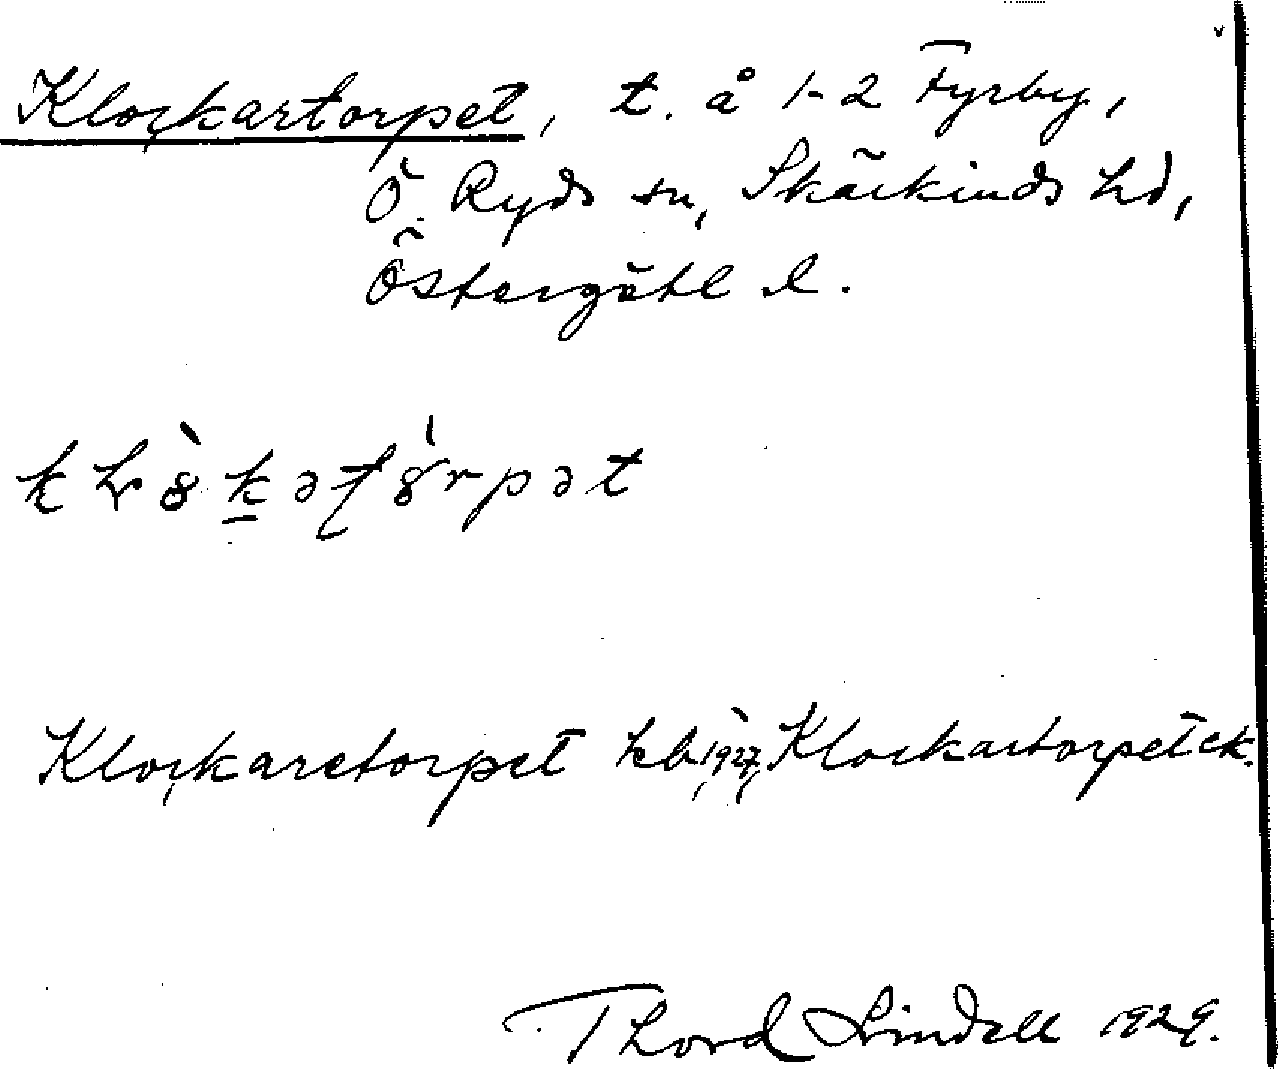 Klockartorpet, t. å 1-2 Fyrby,
Ö. Ryds sn, Skärkinds hd,
Östergötl l.
Klockaretorpet kb 1927, Klockartorpet ek.
Thord Lindell 1929.